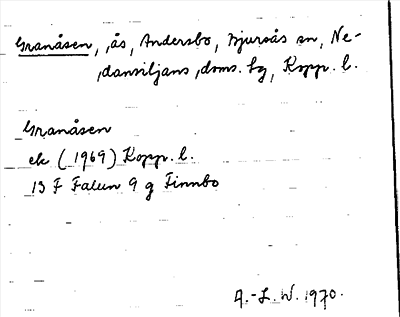 Granåsen, ås, Andersbo, Bjursås sn, Ne-
dansiljans doms. hg, Kopp. l.
Granåsen
ek (1969) Kopp. l.
13 F Falun 9 g Finnbo
A.-L. W. 1970.